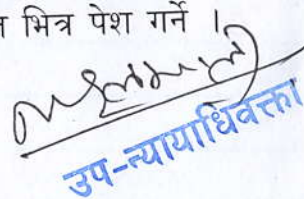 भित्र पेश गर्ने ।
उप-न्यायाधिवक्ता